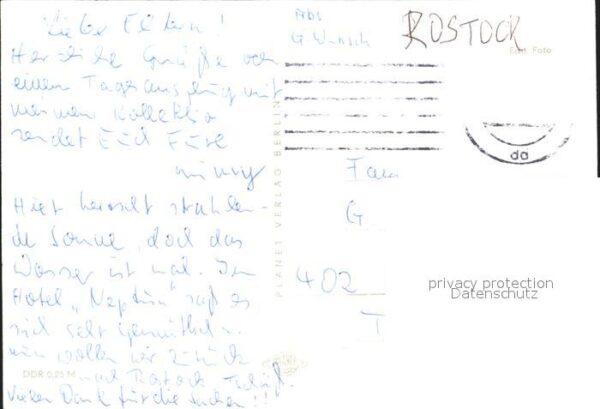 Liebe Eltern!
Herzliche Grüße von
einem Tagesausflug mit
meinem Kollektiv
sendet Euch Eure
Hier herrscht strahlen-
de Sonne, doch das
Wasser ist kalt. Im
Hotel „Neptun“ saß es
sich sehr gemütlich u.
nun wollen wir zurück
nach Rostock
Vielen Dank für die Sachen!!
DDR 0,25 M
PLANET VERLAG BERLIN
Abs.
G
ROSTOCK
Echt Foto
da
Fam
G
402
T
privacy protection
Datenschutz